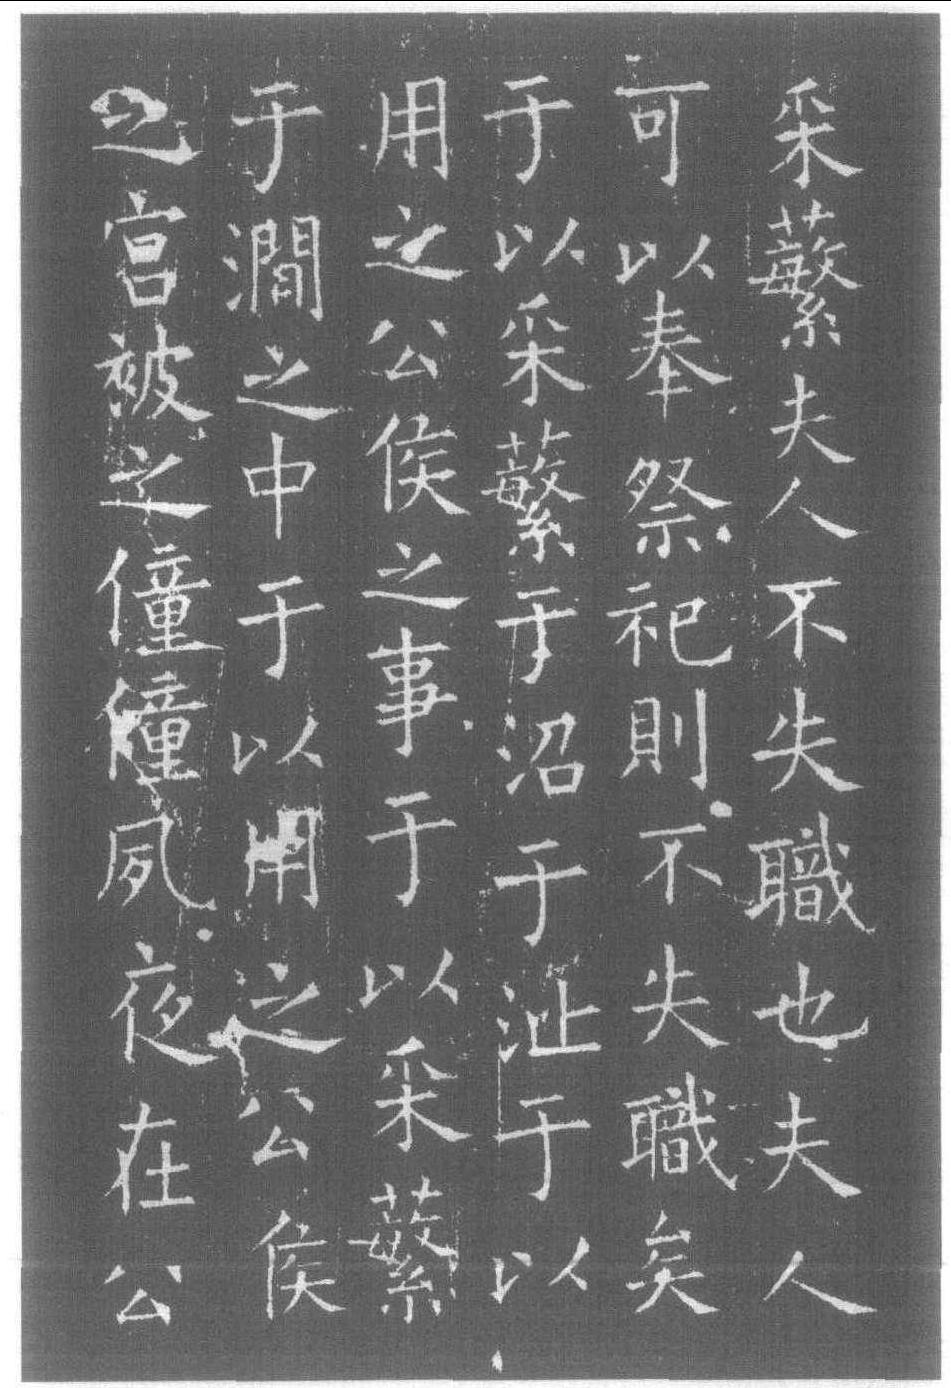 采蘩夫人不失職也夫人
可以奉祭祀則不失職矣
于以采蘩于沼于沚于以
用之公侯之事于以采蘩
于澗之中于以用之公侯
之宮被之僮僮夙夜在公